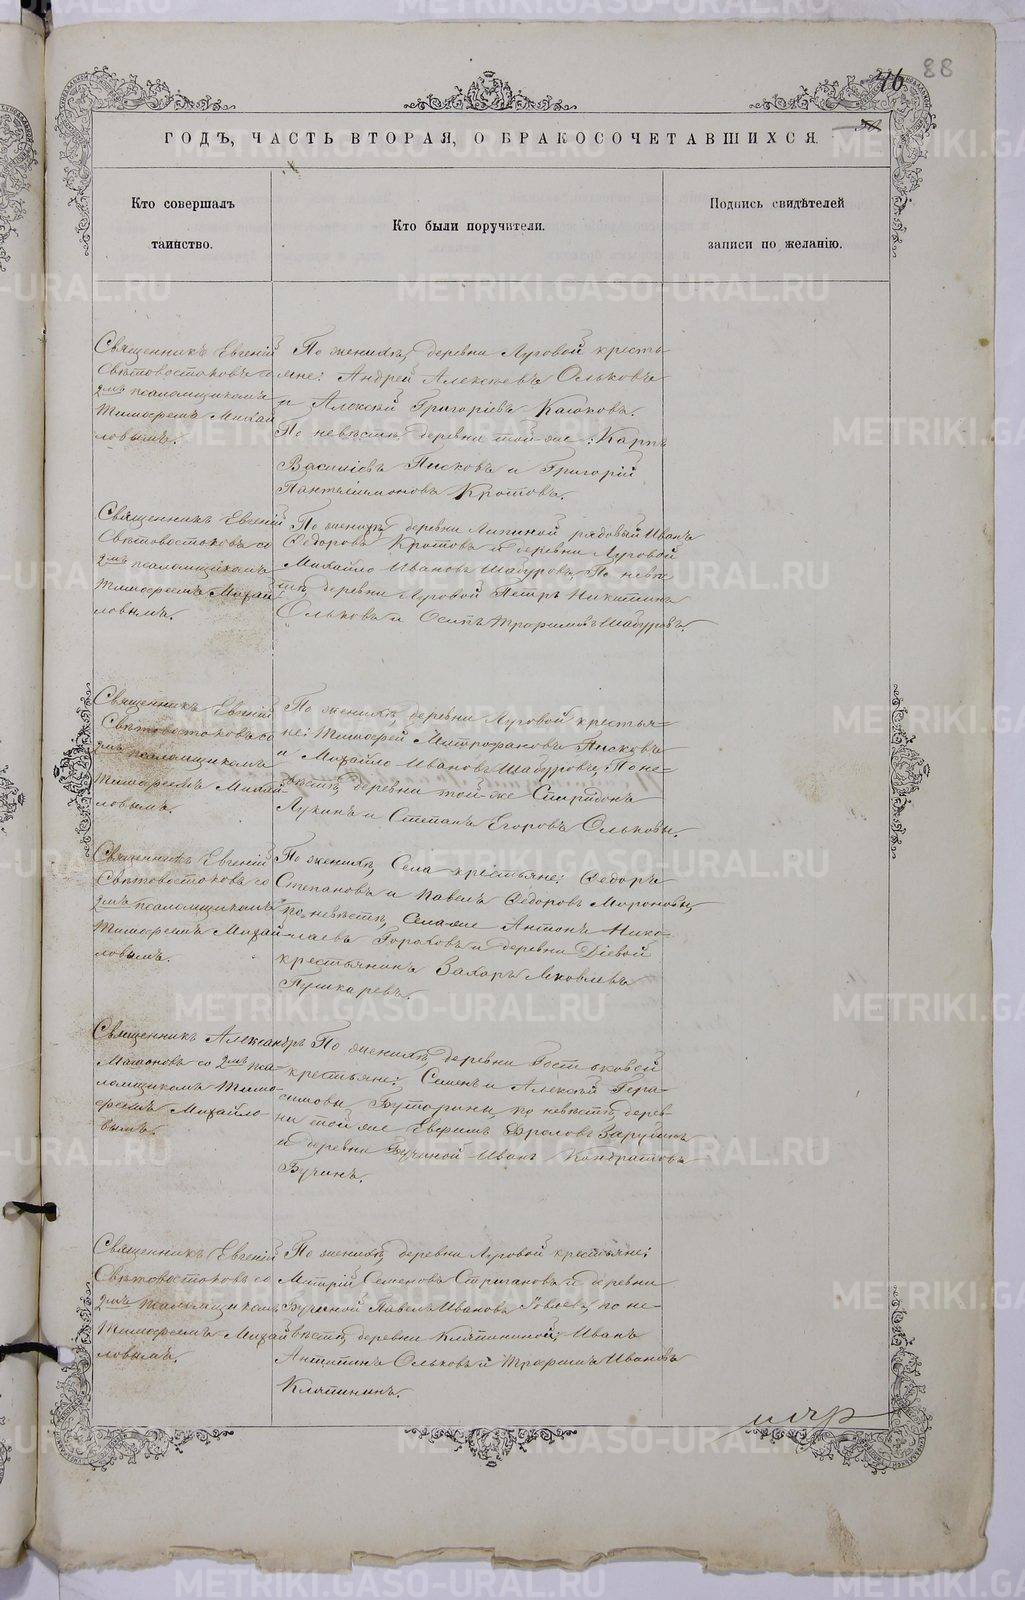 46 88
ГОДЪ, ЧАСТЬ ВТОРАЯ, О БРАКОСОЧЕТАВШИХСЯ.
Кто совершалъ
таинство.
Кто были поручители.
Подпись свидѣтелей
записи по желанію.
Священникъ Евгеній
Свѣтовостоковъ со
2мъ псаломщикомъ
Тимофеемъ Михай
ловымъ.
По женихѣ, деревни Луговой кресть
яне: Андрей Алексѣевъ Ольковъ
и Алексѣй Григоріевъ Каюковъ.
По невѣстѣ, деревни той-же: Карпъ
Василіевъ Писковъ и Григорій
Пантелимоновъ Кротовъ.
Священникъ Евгеній
Свѣтовостоковъ со
2мъ псаломщикомъ
Тимофеемъ Михай
ловымъ.
По женихѣ, деревни Липиной рядовый Иванъ
Ѳедоровъ Кротовъ и деревни Луговой
Михайло Ивановъ Шабуровъ, По невѣ
стѣ, деревни Луговой Петръ Никитинъ
Ольковъ и Осипъ Трофимовъ Шабуровъ.
Священникъ Евгеній
Свѣтовостоковъ со
2мъ псаломщикомъ
Тимофеемъ Михай
ловымъ.
По женихѣ, деревни Луговой крестья-
не: Тимофей Митрофановъ Писковъ
и Михайло Ивановъ Шабуровъ, По не-
вѣстѣ, деревни той-же Спиридонъ
Лукинъ и Степанъ Егоровъ Ольковы.
Священникъ Евгеній
Свѣтовостоковъ со
2мъ псаломщикомъ
Тимофеемъ Михай
ловымъ.
По женихѣ, Села крестьяне: Ѳедоръ
Степановъ и Павелъ Ѳедоровъ Мороновы,
по невѣстѣ, Села же Антонъ Нико-
лаевъ Гороховъ и деревни Діевой
крестьянинъ Захаръ Яковлевъ
Пушкаревъ.
Священникъ Александръ
со 2мъ пса-
ломщикомъ Тимо-
феемъ Михайло-
вымъ.
По женихѣ, деревни
крестьяне: Семенъ и Алексѣй Гера-
симовы Бутарины, по невѣстѣ, дерев-
ни той же Ефремъ Фроловъ Зарубинъ
и деревни Бучиной Иванъ Кондратовъ
Бучинъ.
Священникъ Евгеній
Свѣтовостоковъ со
2мъ псаломщикомъ
Тимофеемъ Михай
ловымъ.
По женихѣ, деревни Луговой крестьяне:
Митрій Семеновъ Стригановъ и деревни
Бучиной Павелъ Ивановъ по не-
вѣстѣ, деревни Кляпининой: Иванъ
Антипинъ Ольковъ и Трофимъ Ивановъ
Кляпининъ.
METRIKI.GASO-URAL.RU